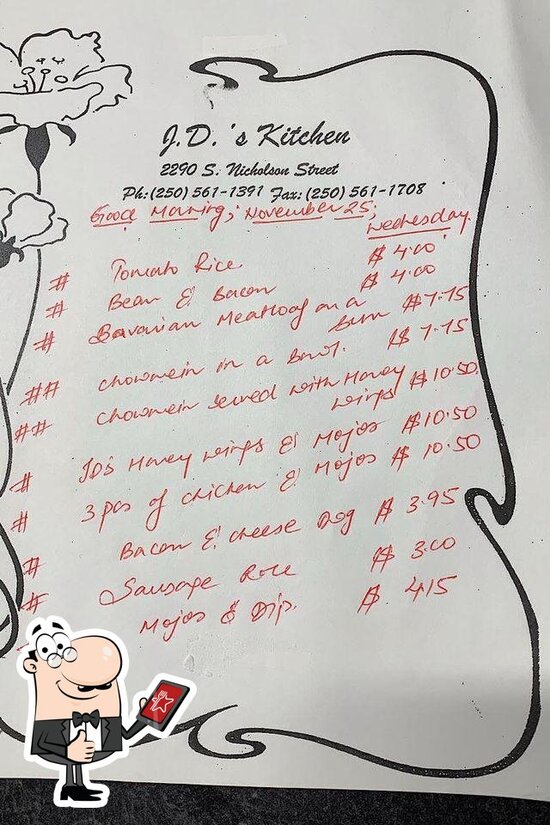 J.D.'s Kitchen
2290 S. Nicholson Street
Ph: (250) 561-1391 Fax: (250) 561-1708
Good Morning; November 25,
Wednesday
# Tomato Rice $ 4.00
# Bean & Bacon $ 4.00
# Bavarian Meatloaf on a
bun $ 7.75
## Chowmein in a Bowl. $ 7.75
## Chowmein served with Honey
wings $ 10.50
# JD's Honey wings & Mojos $ 10.50
# 3 pcs of chicken & Mojos $ 10.50
# Bacon & cheese Dog $ 3.95
# Sausage Role $ 3.00
Mojos & Dip. $ 4.15